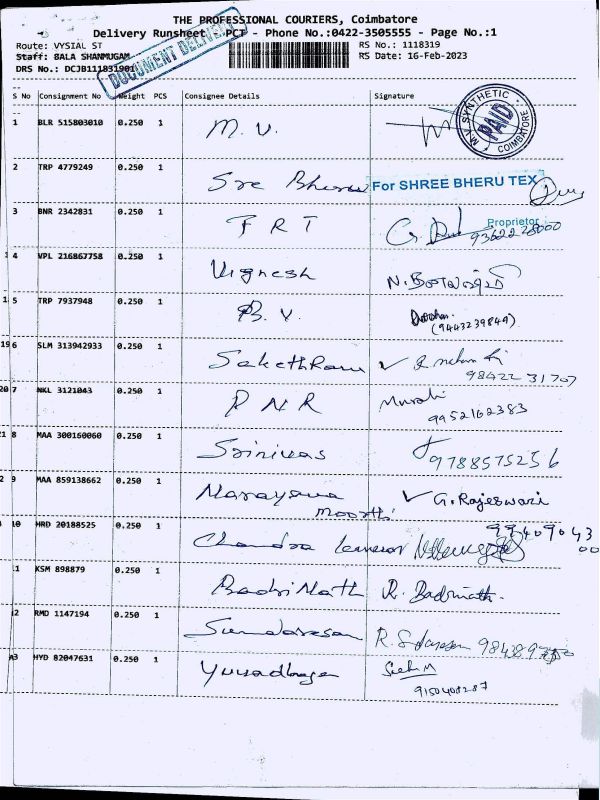 THE PROFESSIONAL COURIERS, Coimbatore
Delivery Runsheet - PCT - Phone No.:0422-3505555 - Page No.:1
Route: VYSIAL ST
RS No.: 1118319
Staff: BALA SHANMUGAM
RS Date: 16-Feb-2023
DRS No.: DCJB111831901
DOCUMENT DELIVERY
S No Consignment No Weight PCS Consignee Details Signature
1 BLR 515803010 0.250 1 M. V.
SYNTHETIC PAID COIMBATORE
2 TRP 4779249 0.250 1 Sre Bheru For SHREE BHERU TEX
Proprietor
3 BNR 2342831 0.250 1 F R T
4 VPL 216867758 0.250 1 Vignesh
5 TRP 7937948 0.250 1 B. V.
(9443239849)
6 SLM 313942933 0.250 1 SakethRam
98422 31707
7 NKL 3121043 0.250 1 P N R Murali
9952162383
8 MAA 300160060 0.250 1 Srinivas
9788575256
9 MAA 859138662 0.250 1 Narayana Moorthi G. Rajeswari
10 HRD 20188525 0.250 1 Chandra
11 KSM 898879 0.250 1 BadriNath R. Badrinath.
12 RMD 1147194 0.250 1 Sundaresan
13 HYD 82047631 0.250 1
9150408287